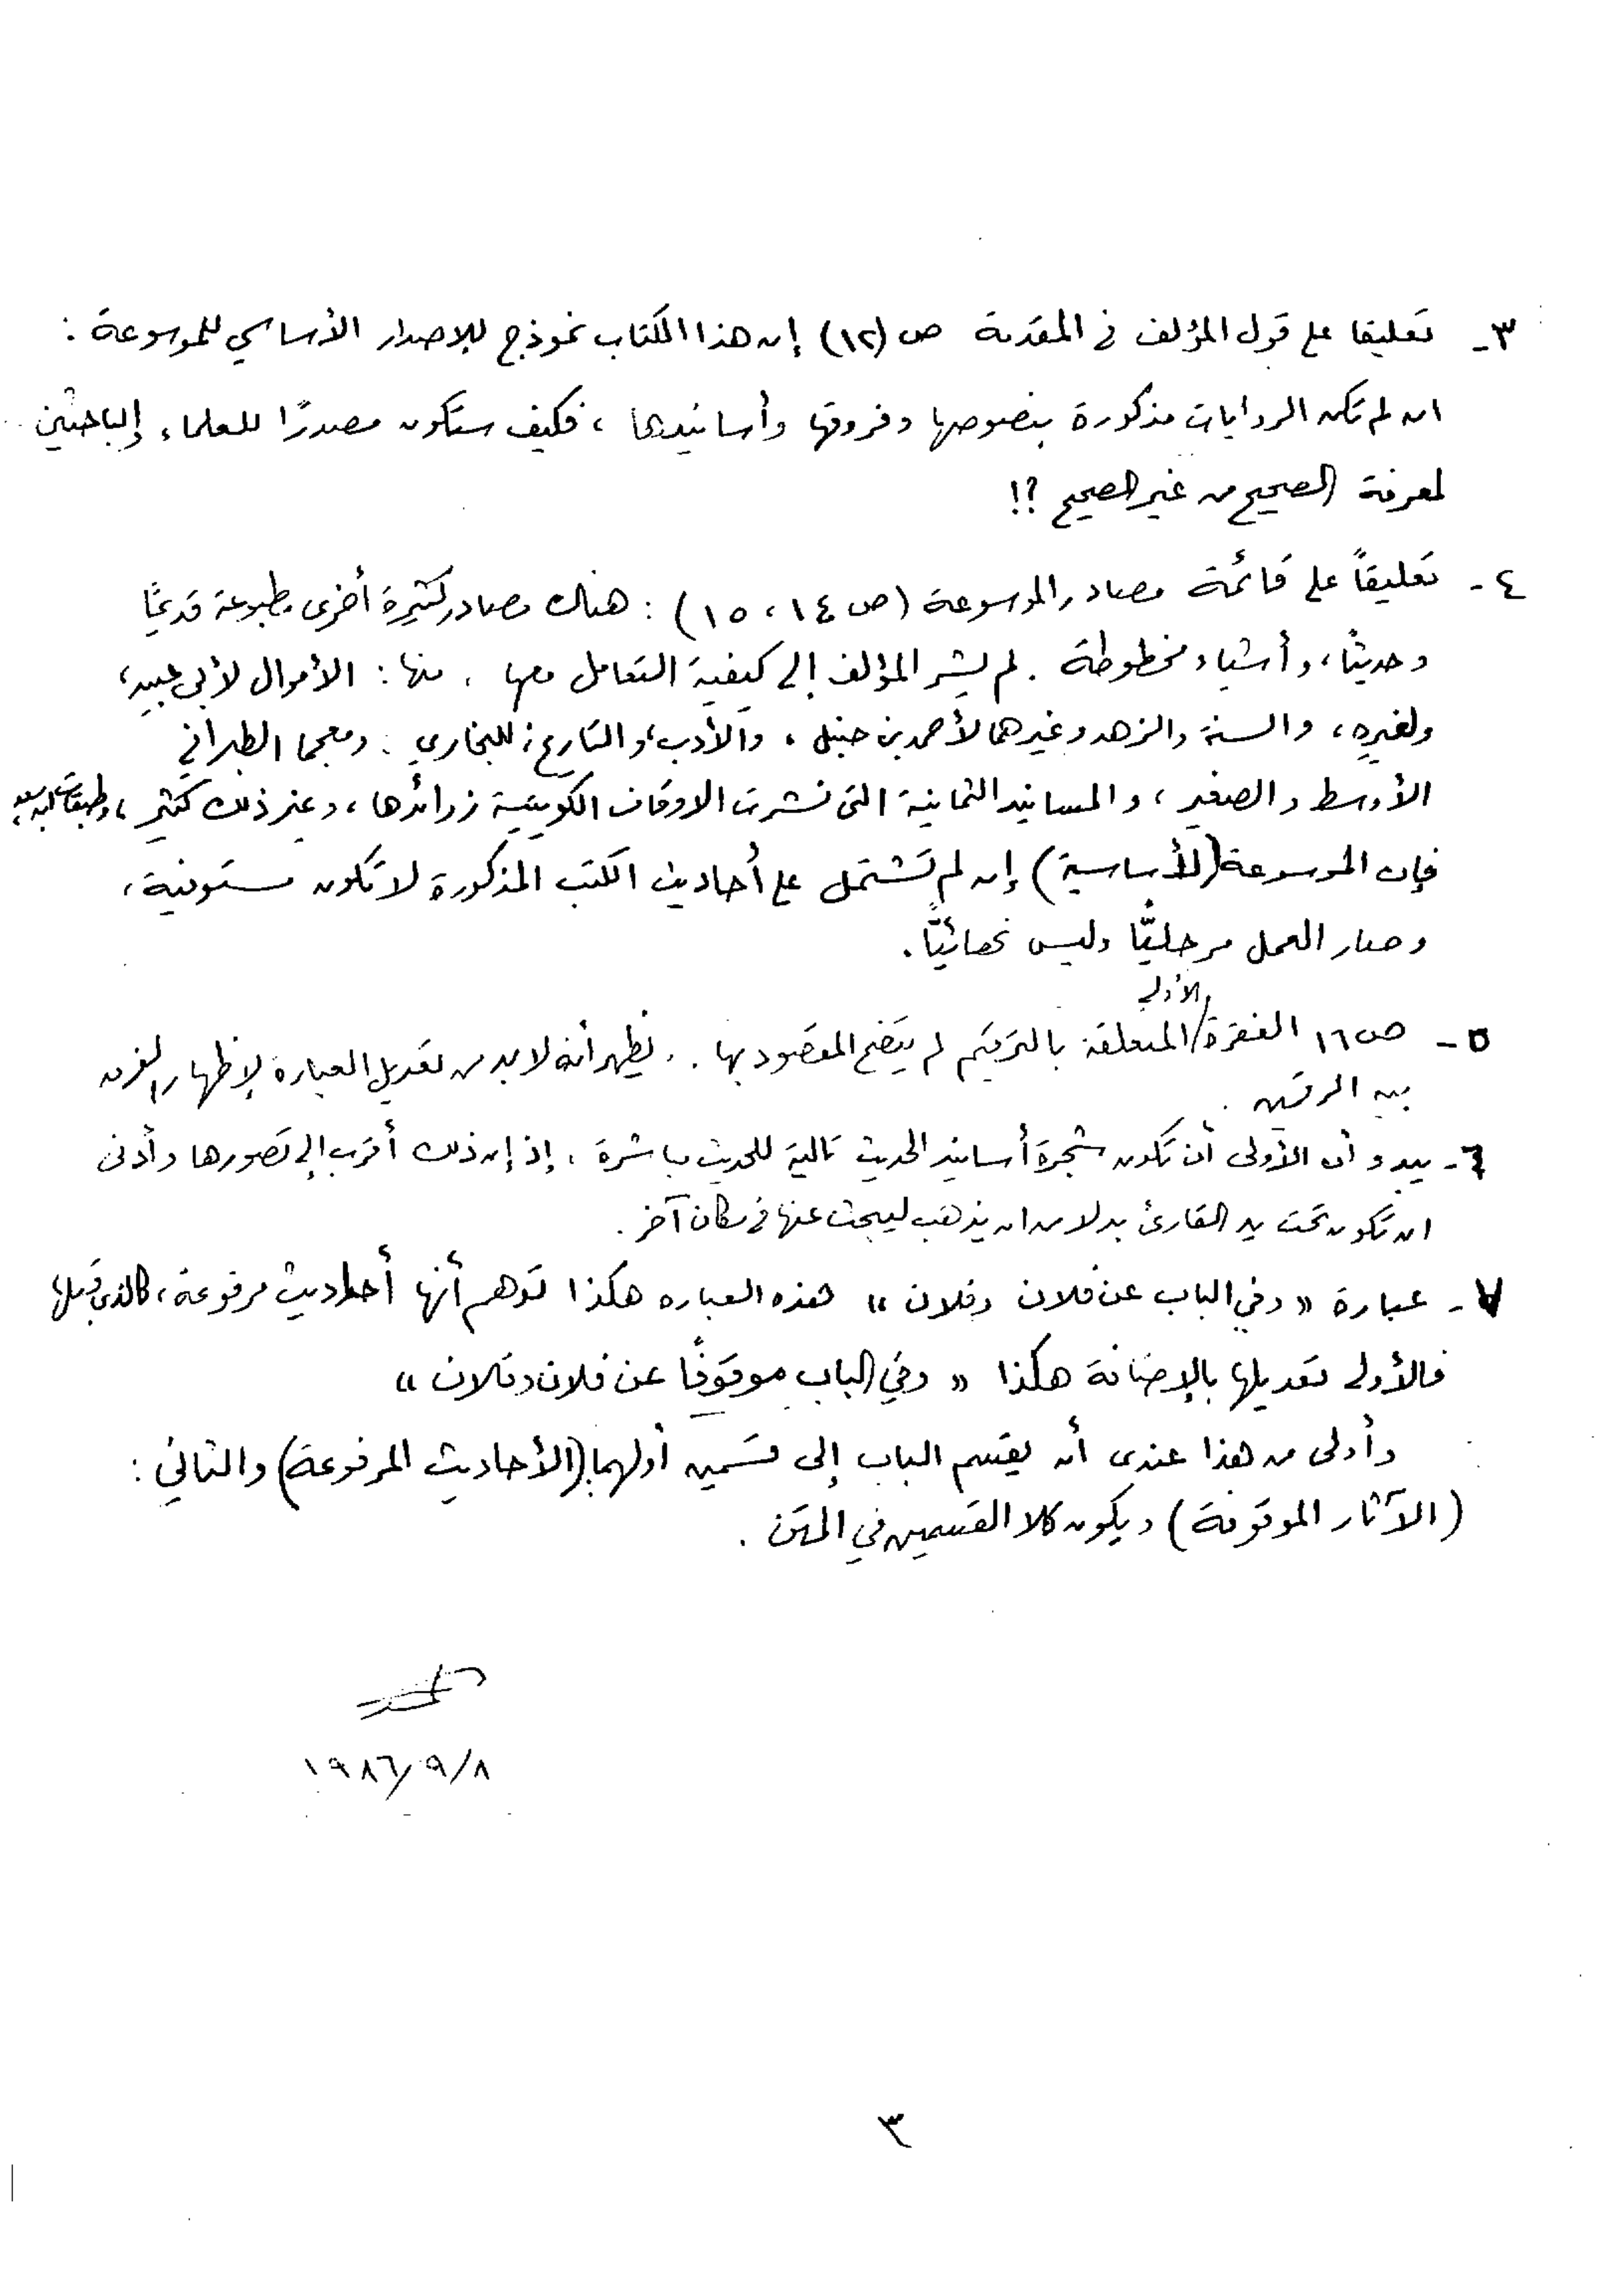 ٣- تعليقا على قول المؤلف في المقدمة ص (١٢) إن هذا الكتاب نموذج للإصدار الأساسي للموسوعة :
ان لم تكن الروايات مذكورة بنصوصها وفروقها وأسانيدها ، فكيف ستكون مصدرًا للعلماء الباحثين
لمعرفة الصحيح من غير الصحيح ؟!
٤- تعليقاً على قائمة مصادر الموسوعة (ص ١٤ ، ١٥) : هناك مصادر كثيرة أخرى مطبوعة قديمًا
وحديثًا ، وأشياء مخطوطة . لم يشر المؤلف إلى كيفية التعامل معها . منها : الأموال لأبي عبيد ،
ولغيره ، والسنة والزهد وغيرهما لأحمد بن حنبل ، والأدب ، والتاريخ للبخاري . ومعجما الطبراني
الأوسط والصغير ، والمسانيد الثمانية التي نشرت الاوقاف الكويتية زوائدها ، وغير ذلك كثير ، وطبقات ابن سعد ،
فإن الموسوعة (الأساسية) إن لم تشتمل على أحاديث الكتب المذكورة لا تكون مستوفية ،
وصار العمل مرحليًّا وليس نهائيًّا .
٥- ص ١٦ الفقرة الأولى المتعلقة بالترقيم لم يتضح المقصود بها . . يظهر أنه لا بد من تعديل العبارة لإظهار الفرق
بين الرقمين .
٦- يبدو أن الأولى أن تكون شجرة أسانيد الحديث تالية للحديث مباشرة ، إذ إن ذلك أقرب إلى تصورها وأدنى
ان تكون تحت يد القارئ بدلا من ان يذهب ليبحث عنها في مكان آخر .
٧- عبارة « وفي الباب عن فلان وفلان » هذه العباره هكذا توهم أنها أحاديث مرفوعة ، كالذي قبلها
فالأولى تعديلها بالإضافة هكذا « وفي الباب موقوفًا عن فلان وفلان »
وأولى من هذا عندى أن يقسم الباب إلى قسمين أولهما (الأحاديث المرفوعة) والثاني :
(الآثار الموقوفة) ويكون كلا القسمين في المتن .
١٩٨٦/٩/٨
٣